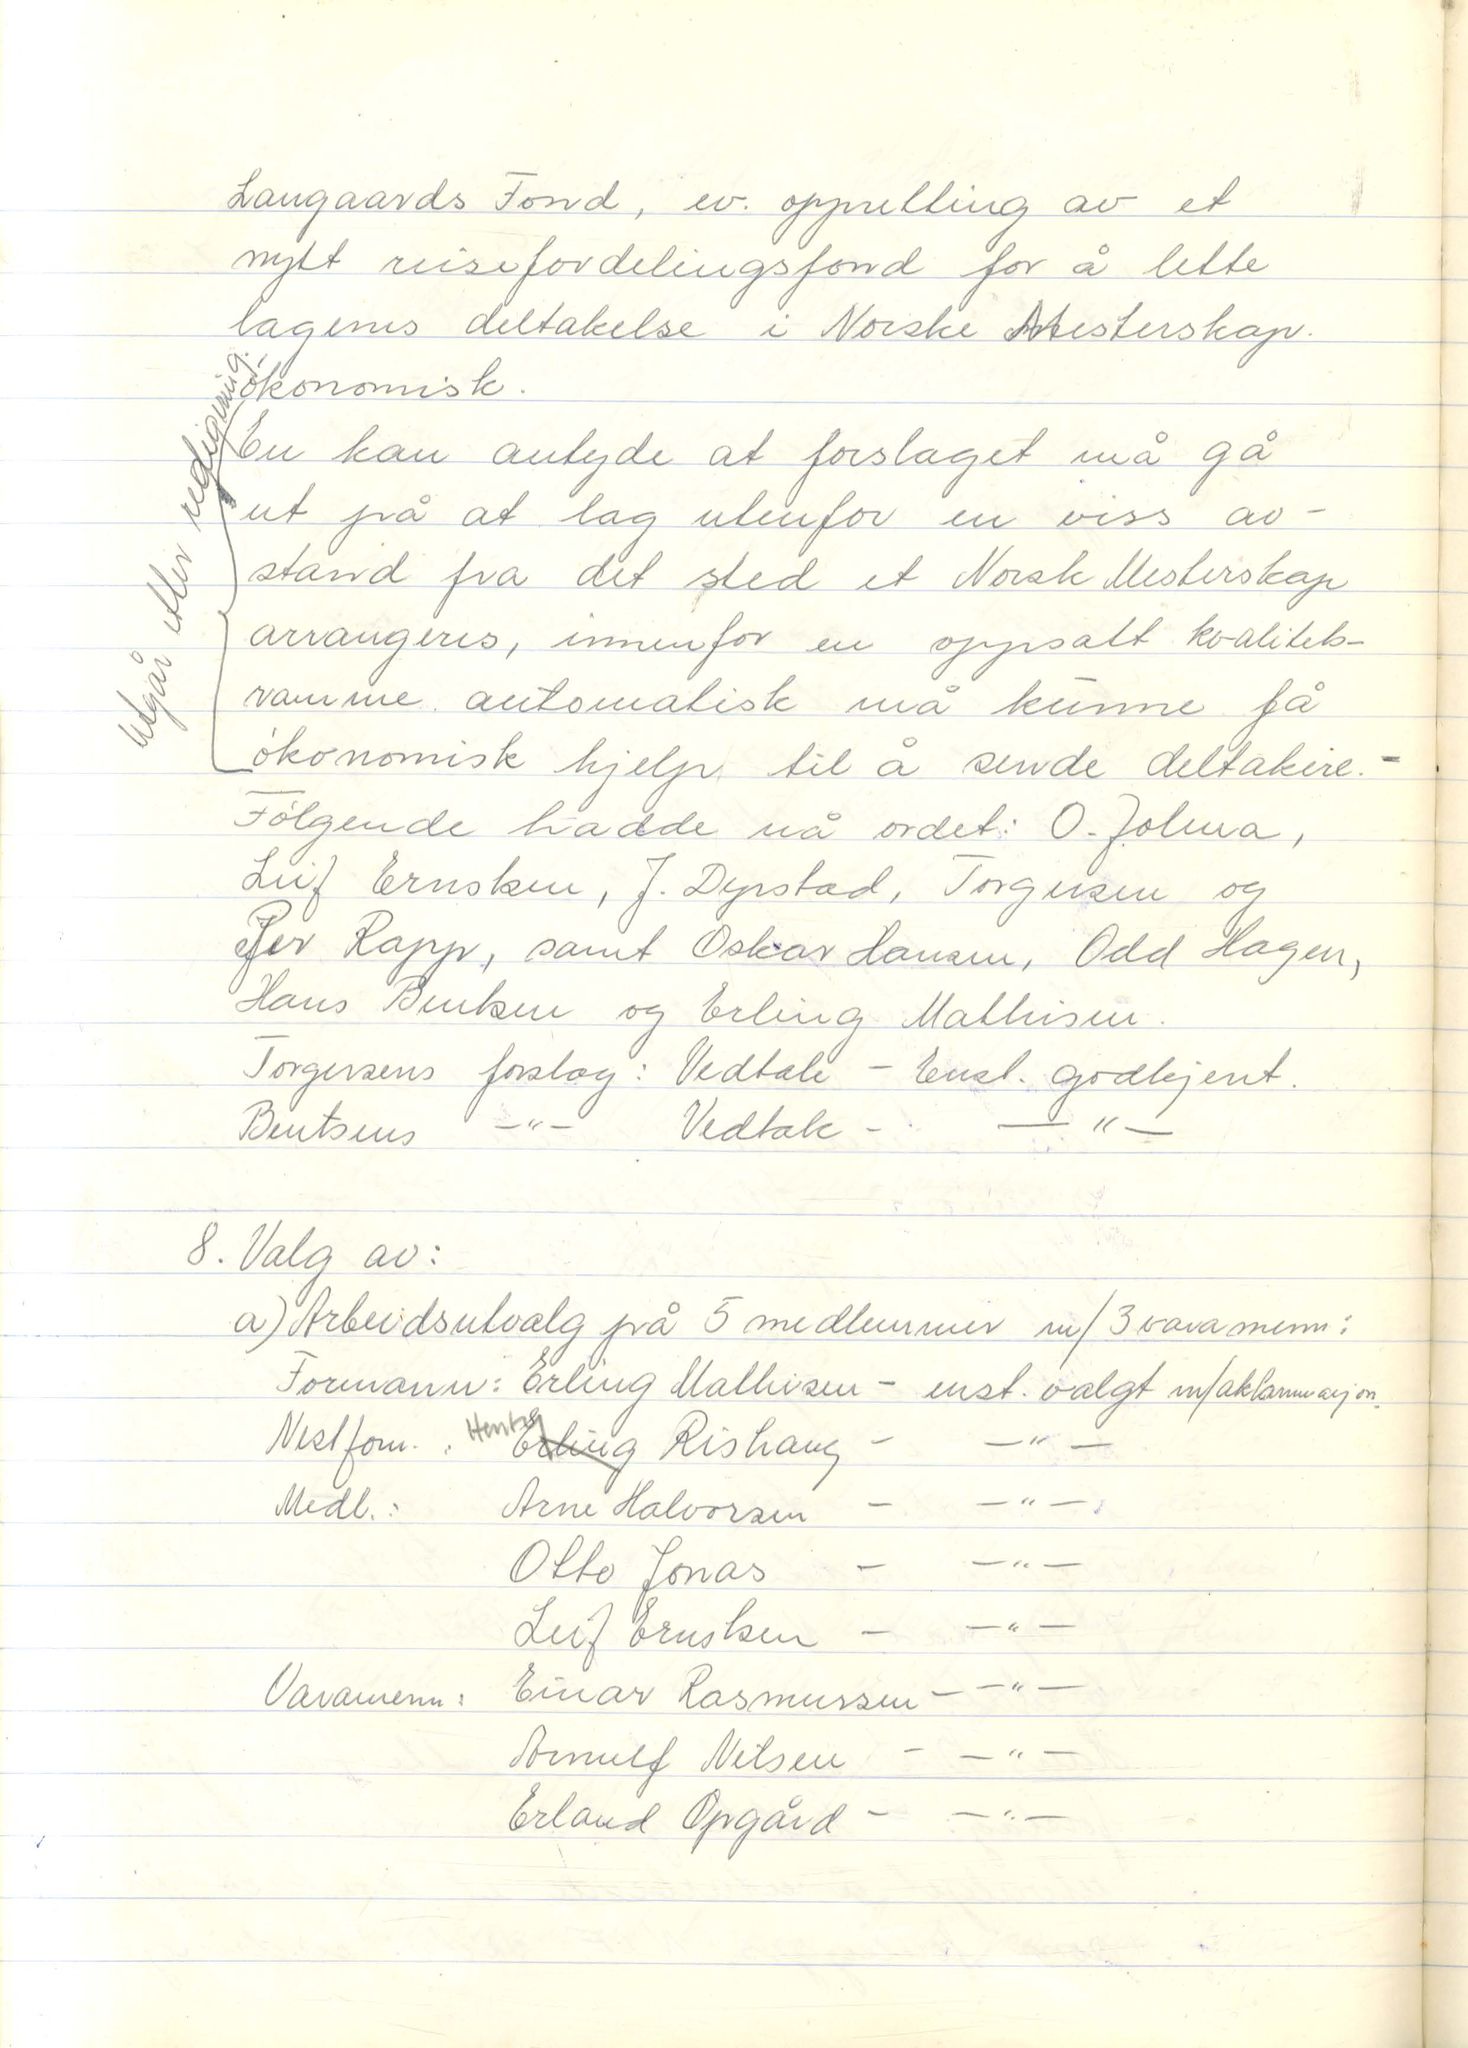 Langaards Fond, ev. oppretting av et
nytt reisefordelingsfond for å lette
lagenes deltakelse i Norske Mesterskap.
økonomisk.
Utgår etter redigering.
En kan antyde at forslaget må gå
ut på at lag utenfor en viss av-
stand fra det sted et Norsk Mesterskap
arrangeres, innenfor en oppsatt kvalitets-
ramme automatisk må kunne få
økonomisk hjelp til å sende deltakere.-
Følgende hadde nå ordet: O. Jolma,
Leif Erntsen, J. Dyrstad, Torgersen og
Per Rapp, samt Oskar Hansen, Odd Hagen,
Hans Bentsen og Erling Mathisen.
Torgersens forslag: Vedtak - Enst. godkjent.
Bentsens -"- Vedtak - -"-
8. Valg av:
a) Arbeidsutvalg på 5 medlemmer m/3 varamenn:
Formann: Erling Mathisen - enst. valgt m/aklamasjon.
Nestform. : Hentzy Erling Rishaug - -"-
Medl.: Arne Halvorsen - -"-
Otto Jonas - -"-
Leif Erntsen - -"-
Varamenn: Einar Rasmussen - -"-
Arnulf Nilsen - -"-
Erland Opgård - -"-